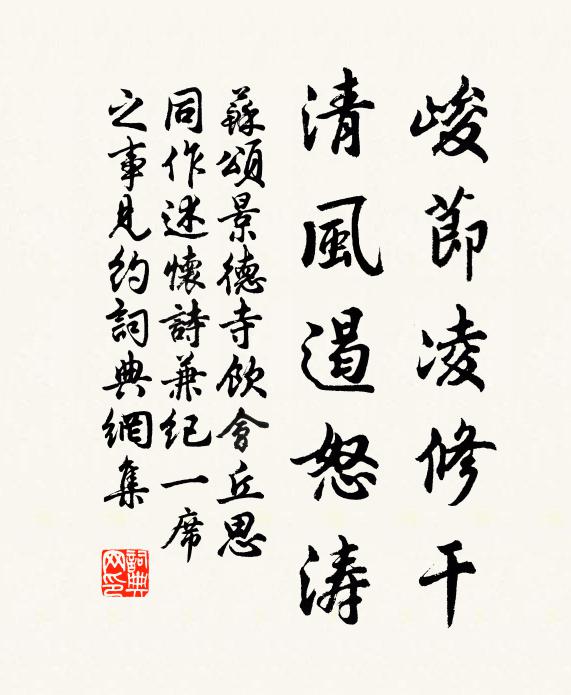 峻節凌修干
清風遏怒濤
蘇頌景德寺飲會丘思
同作述懷詩兼紀一席
之事見約詞典網集
詞典網印